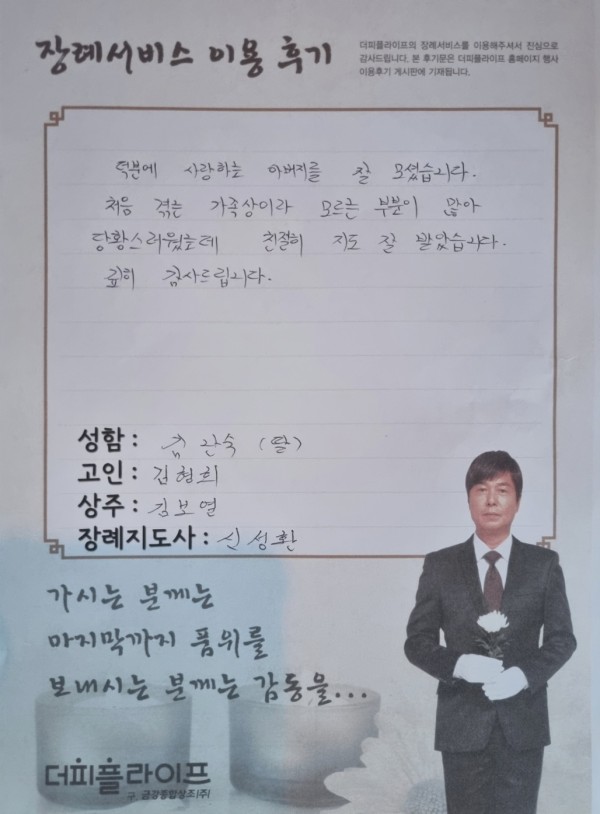 장례서비스 이용 후기
더피플라이프의 장례서비스를 이용해주셔서 진심으로
감사드립니다. 본 후기문은 더피플라이프 홈페이지 행사
이용후기 게시판에 기재됩니다.
덕분에 사랑하는 아버지를 잘 모셨습니다.
처음 겪는 가족상이라 모르는 부분이 많아
당황스러웠는데 친절히 지도 잘 받았습니다.
깊히 감사드립니다.
성함 : 김관숙 (딸)
고인 : 김형희
상주 : 김보열
장례지도사 : 신성환
가시는 분께는
마지막까지 품위를
보내시는 분께는 감동을...
더피플라이프
구. 금강종합상조(주)